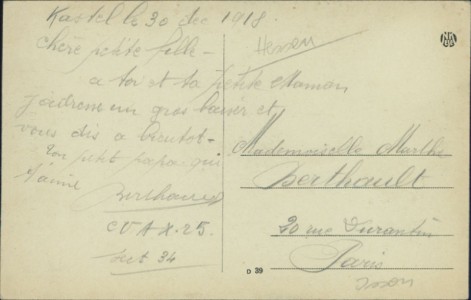 Kastel le 30 dec 1918.
Chère petite fille -
a toi et ta petite Maman
j'adresse un gros baiser et
vous dis a bientot -
ton petit papa qui
t'aime
Berthault
CVAX. 25.
Sect 34
Hessen
Mademoiselle Marthe
Berthault
20 rue Durantin
Paris
D 39